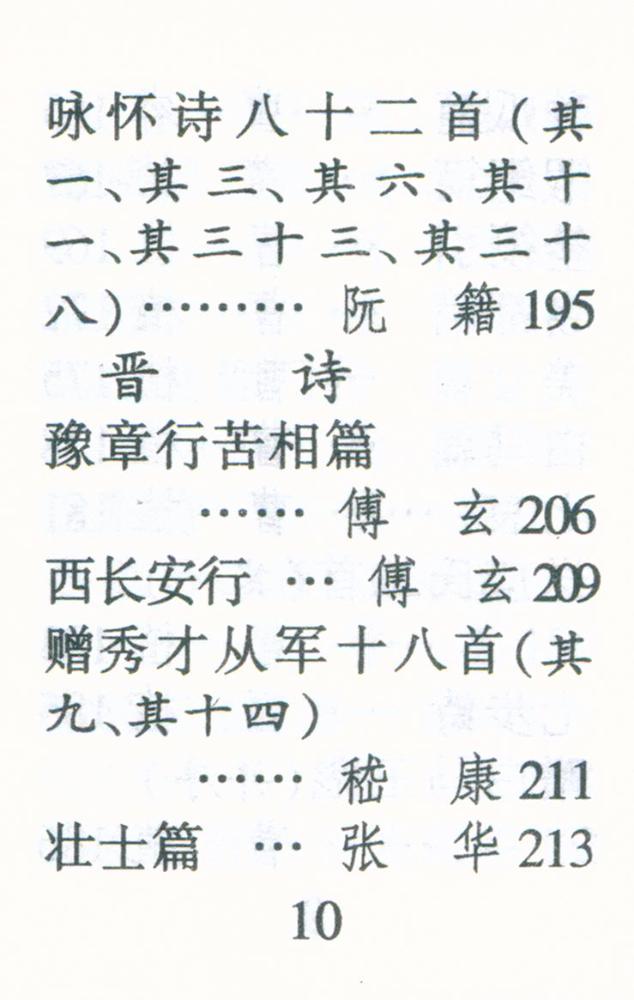 咏怀诗八十二首(其
一、其三、其六、其十
一、其三十三、其三十
八)⋯⋯⋯ 阮 籍 195
晋 诗
豫章行苦相篇
⋯⋯ 傅 玄 206
西长安行 ⋯ 傅 玄 209
赠秀才从军十八首(其
九、其十四)
⋯⋯ 嵇 康 211
壮士篇 ⋯ 张 华 213
10